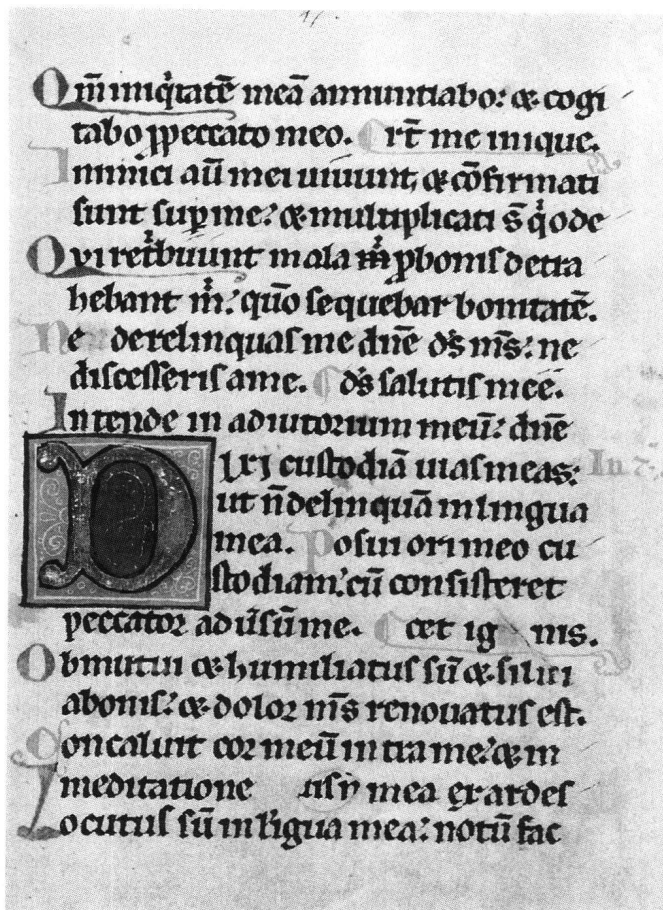 Qm̄ iniq̇tatē meā annuntiabo: & cogi
tabo ꝓpeccato meo. rt̄ me inique.
Inimici aū mei uiuunt, & cōfirmati
sunt suꝑ me: & multiplicati s̄ q̇ ode
Qui retͥbuunt mala m̄ ꝓbonis detra
hebant m̄: qūo sequebar bonitatē.
Ne derelinquas me dn̄e ds̄ ms̄: ne
discesseris a me. ds̄ salutis mee.
Intende in adiutorium meū: dn̄e
Dixi custodiā uias meas:
ut n̄ delinquā in lingua
mea. Posui ori meo cu
stodiam: cū consisteret
peccator ad ūsū me. cet ig nis.
Obmutui & humiliatus sū & silui
a bonis: & dolor ms̄ renouatus est.
Concaluit cor meū intra me: & in
meditatione mea exardes
Locutus sū in līgua mea: notū fac